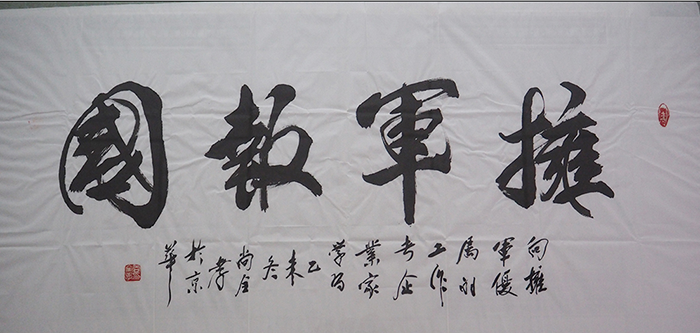 擁軍報國
向擁
軍優
屬的
工作
者企
業家
學習
乙未
冬
尚全
孝
於京
華